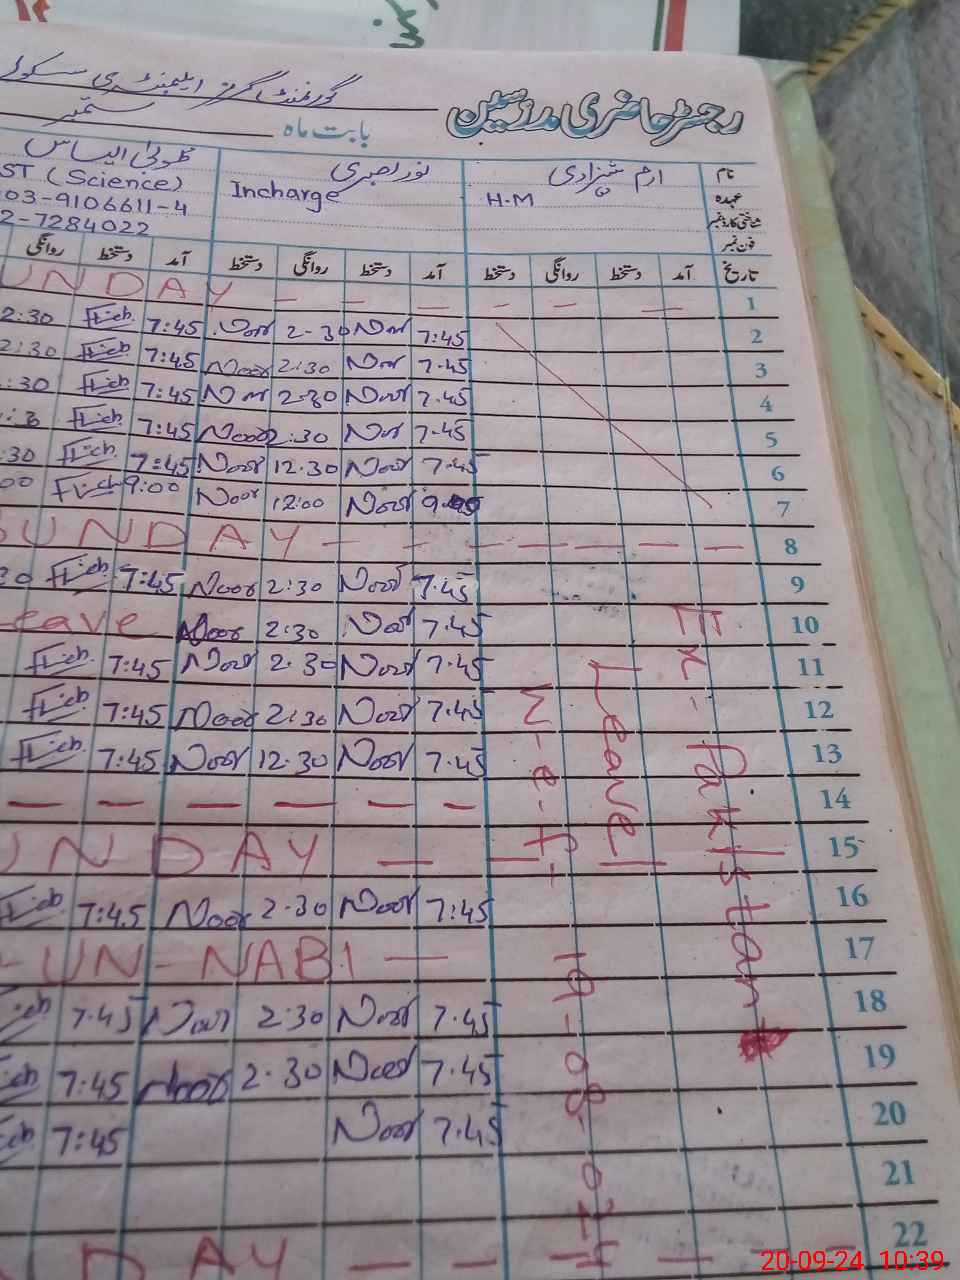 گورنمنٹ گرلز ایلیمنٹری سکول
رجسٹر حاضری مدرسین
بابت ماہ ستمبر
نام ارم شہزادی
عہدہ H-M
شناختی کارڈ نمبر
فون نمبر
Incharge
ST (Science)
03-9106611-4
2-7284022
تاریخ آمد دستخط روانگی دستخط آمد دستخط روانگی دستخط آمد دستخط روانگی
1 — — — — — — UNDAY
2 7:45 Noor 2-30 Noor 7:45 2:30
3 7.45 Noor 2:30 Noor 7:45 2:30
4 7.45 Noor 2.30 Noor 7:45 :30
5 7.45 Noor :30 Noor 7:45
6 7.45 Noor 12.30 Noor 7:45 30
7 Noor 12:00 Noor 9:00 00
8 — — — — — — SUNDAY
9 7.45 Noor 2:30 Noor 7:45 30
10 7.45 Noor 2:30 Noor eave
11 7.45 Noor 2.30 Noor 7:45
12 7.45 Noor 2:30 Noor 7:45
13 7.45 Noor 12.30 Noor 7:45
14 — — — — — —
15 — — — UNDAY
16 7:45 Noor 2.30 Noor 7:45
17 -UN-NABI —
18 7.45 Noor 2:30 Noor 7.45
19 7.45 Noor 2.30 Noor 7:45
20 7.45 Noor 7:45
21
22 — — — — — — UNDAY
Ex-Pakistan
Leave
W-e-f-
19-08-024
20-09-24 10:39